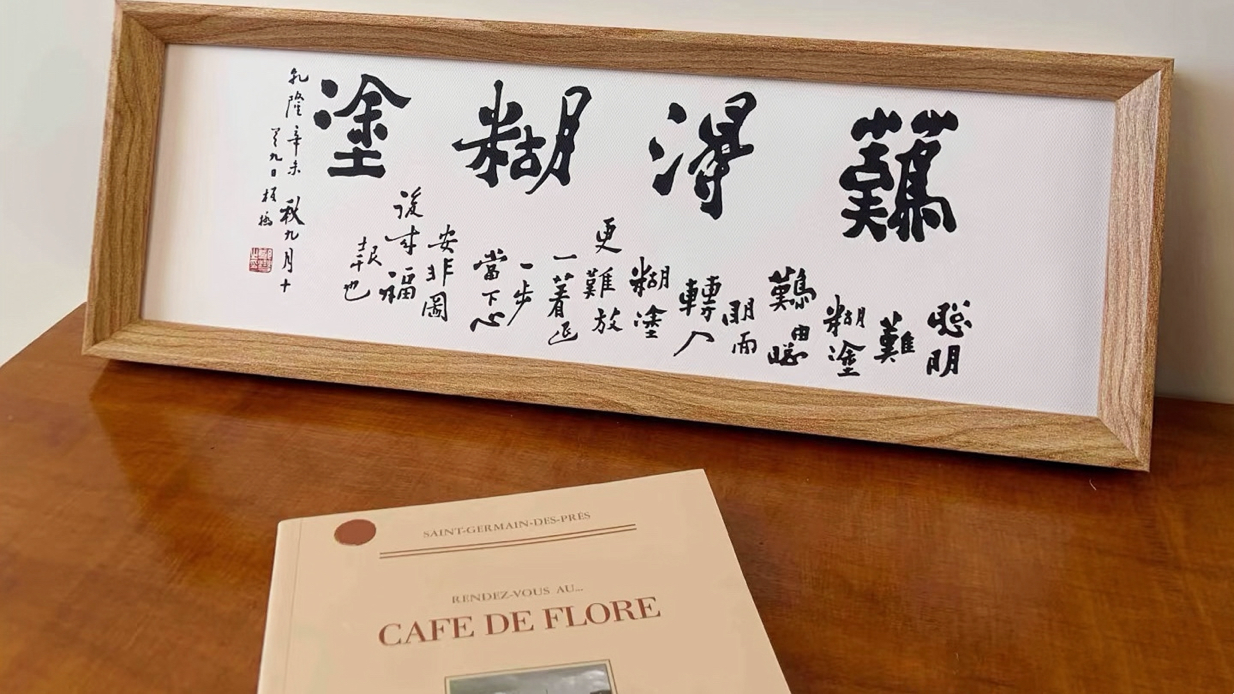 難得糊塗
聰明
難
糊塗
難由聰
明而
轉入
糊塗
更難放
一著退
一步
當下心
安非圖
後來福
報也
乾隆辛未秋九月十
又九日板橋
SAINT-GERMAIN-DES-PRÉS
RENDEZ-VOUS AU...
CAFE DE FLORE